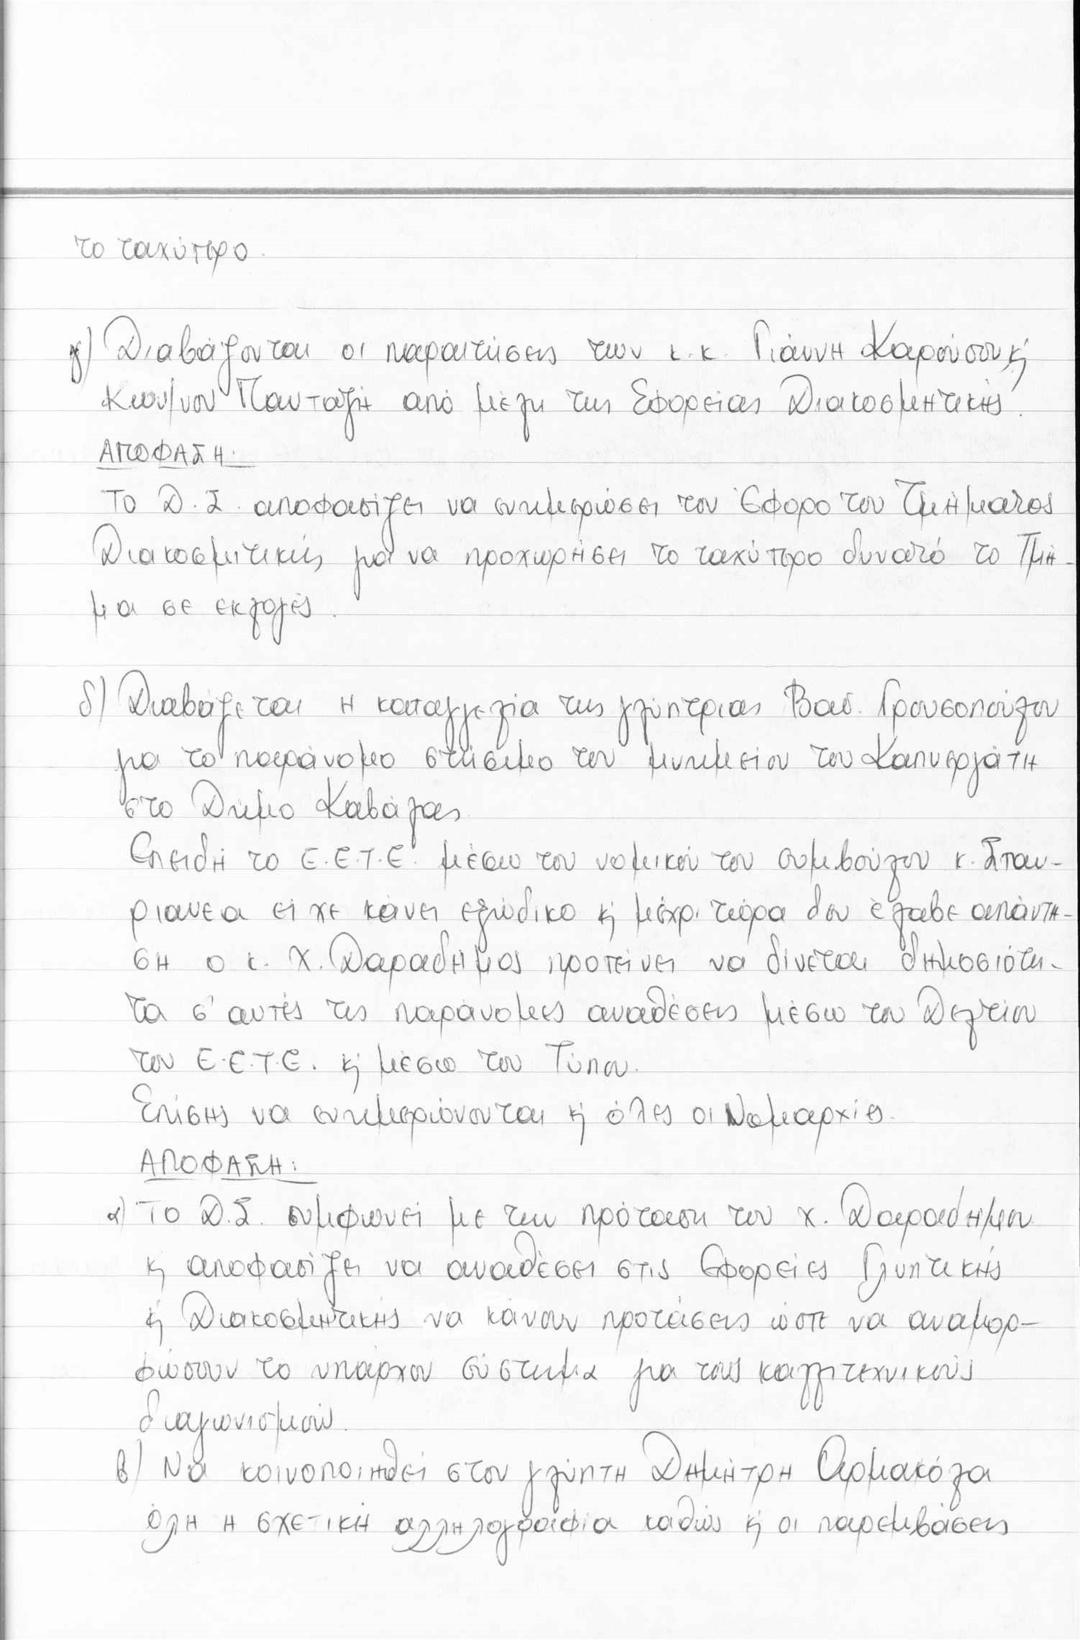 το ταχύτερο.
γ) Διαβάζονται οι παραιτήσεις των κ.κ. Γιάννη Καρούσου κ'
Κων/νου Πανταζή από μέλη της Εφορείας Διακοσμητικής.
ΑΠΟΦΑΣΗ:
Το Δ.Σ. αποφασίζει να ενημερώσει τον Έφορο του Τμήματος
Διακοσμητικής για να προχωρήσει το ταχύτερο δυνατό το Τμή-
μα σε εκλογές.
δ) Διαβάζεται η καταγγελία της γλύπτριας Βασ. Γρουσοπούλου
για το παράνομο στήσιμο του μνημείου του Καπνεργάτη
στο Δήμο Καβάλας.
Επειδή το Ε.Ε.Τ.Ε. μέσω του νομικού του συμβούλου κ. Σταυ-
ριανέα είχε κάνει εξώδικο κ' μέχρι τώρα δεν έλαβε απάντη-
ση ο κ. Χ. Δαραδήμος προτείνει να δίνεται δημοσιότη-
τα σ' αυτές τις παράνομες αναθέσεις μέσω του Δελτίου
του Ε.Ε.Τ.Ε. κ' μέσω του Τύπου.
Επίσης να ενημερώνονται κ' όλες οι Νομαρχίες.
ΑΠΟΦΑΣΗ:
α) Το Δ.Σ. συμφωνεί με την πρόταση του Χ. Δαραδήμου
κ' αποφασίζει να αναθέσει στις Εφορείες Γλυπτικής
κ' Διακοσμητικής να κάνουν προτάσεις ώστε να αναμορ-
φώσουν το υπάρχον σύστημα για τους καλλιτεχνικούς
διαγωνισμούς.
β) Να κοινοποιηθεί στον γλύπτη Δημήτρη Αρμακόλα
όλη η σχετική αλληλογραφία καθώς κ' οι παρεμβάσεις